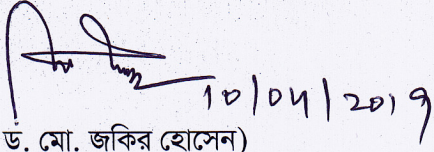 10/04/2019
ড. মো. জকির হোসেন)